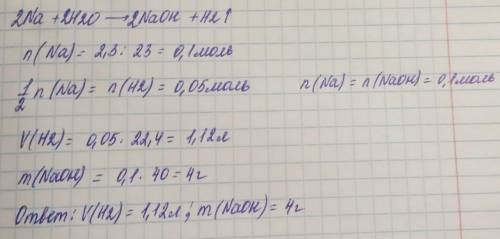 2Na + 2H2O → 2NaOH + H2↑
n(Na) = 2,3 : 23 = 0,1 моль
1/2 n(Na) = n(H2) = 0,05 моль n(Na) = n(NaOH) = 0,1 моль
V(H2) = 0,05 · 22,4 = 1,12 л
m(NaOH) = 0,1 · 40 = 4 г
Ответ: V(H2) = 1,12 л ; m(NaOH) = 4 г